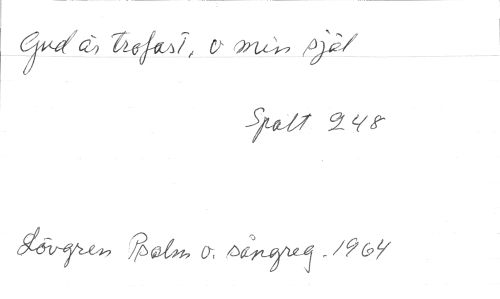 Gud är trofast, o min själ
Spalt 248
Lövgren Psalm o. sångreg. 1964